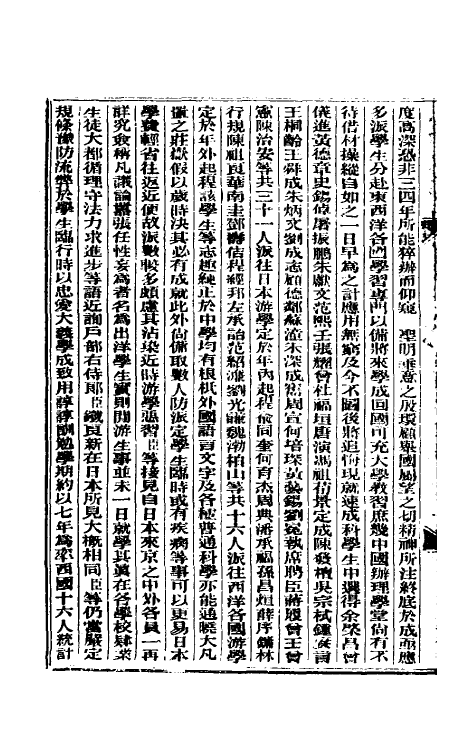 度高深憑非三四年所能猝辦而仰窺　聖明垂意之殷環顧舉國屬望之切精神所注終底於成亟應
多派學生分赴東西洋各國學習專門以備將來學成回國可充大學教習庶幾中國辦理學堂尚有不
待借材操縱自如之一日早為之計應用無窮及今不圖後將追悔現就速成科學生中選得余棨昌曾
儀進黃德章史錫倬屠振鵬朱獻文范熙壬張耀曾杜福垣唐演馮祖荀景定成陳發檀吳宗栻鍾賡言
王桐齡王舜成朱炳文劉成志顧德鄰蘇潼朱深成雋周宣何培琛黃藝錫劉冕執席聘臣蔣履曾王曾
憲陳治安等共三十一人派往日本游學定於年內起程俞同奎何育杰周典潘承福孫昌烜薛序鏞林
行規陳祖良華南圭鄧壽佶程經邦左承詒范紹濂劉光謙魏渤柏山等共十六人派往西洋各國游學
定於年外起程該學生等志趣純正於中學均有根柢外國語言文字及各種普通科學亦能通曉大凡
置之莊嶽假以歲時決其必有成就此外尚備取數人防派定學生臨時或有疾病等事可以更易日本
學費輕省往返近便故派數較多頗慮其沾染近時游學惡習臣等接見自日本來京之中外各員一再
詳究僉稱凡議論囂張任性妄為者名為出洋學生實則閒游生事並未一日就學其真在各學校肄業
生徒大都循理守法力求進步等語近詢戶部右侍郎臣鐵良新在日本所見大概相同臣等仍當嚴定
規條豫防流弊於學生臨行時以忠愛大義學成致用諄諄勗勉學期約以七年為率西國十六人統計